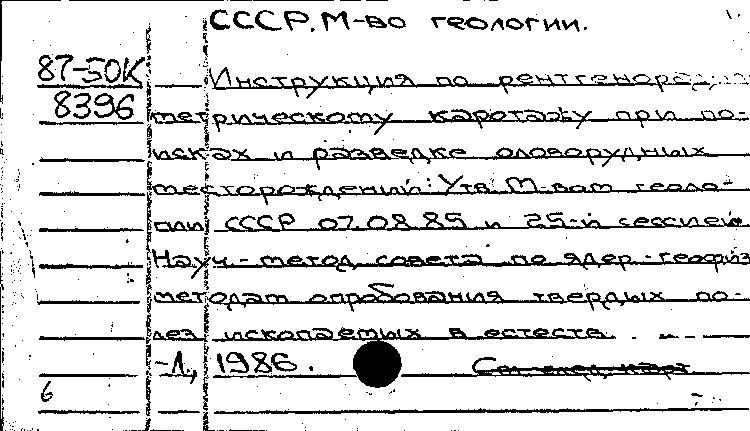 СССР. М-во геологии.
87-50К
Инструкция по рентгенорадио-
8396
метрическому каротажу при по-
исках и разведке оловорудных
месторождений: Утв. М-вом геоло-
гии СССР 07.08.85 и 25-й сессией
Науч.-метод. совета по ядер.-геофиз.
методам опробования твердых по-
лез. ископаемых в естеств.
-Л., 1986.
См. след. карт.
6